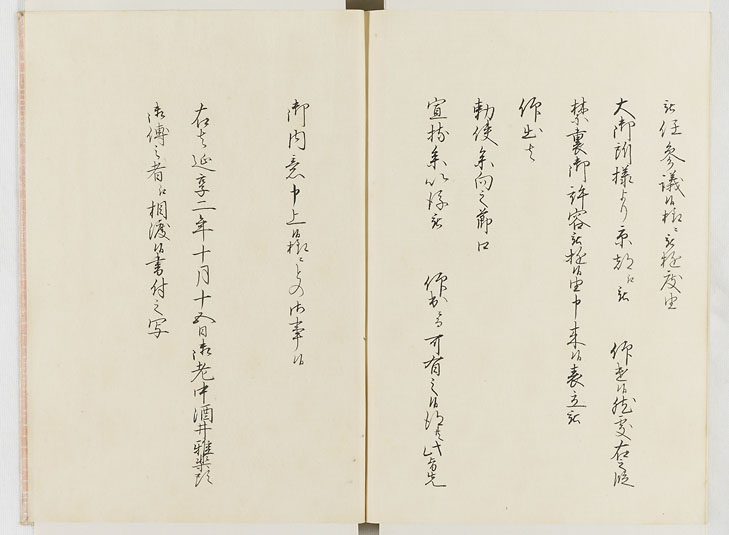 被任参議候様ニ被遊度由
大御所様より京都江被 仰進候処右之段
禁裏御許容被遊候由申来候表立被
仰出者
勅使参向之節口
宣持参以後被 仰出ニ而可有之候得共此旨先
御内意申上候様ニとの御事候
右者延享二年十月十五日御老中酒井雅楽頭
御傅之者江相渡候書付之写